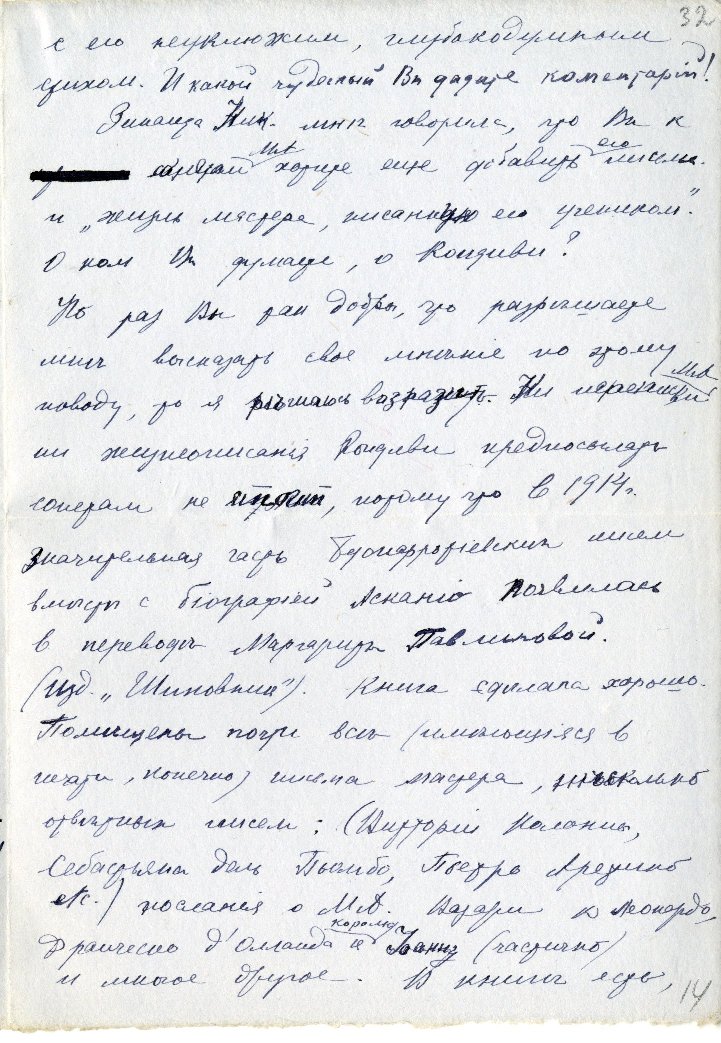 32
с его неуклюжим, глубокодумным
стихом. И какой чудесный Вы дадите коментарій!
Зинаида Ник. мнѣ говорила, что Вы к
М.А его
хотите еще добавить письма
и „жизнь мастера, писанную его учеником".
О ком Вы думаете, о Кондиви?
Но раз Вы так добры, что разрѣшаете
мнѣ высказать свое мнѣніе по этому
М.А
поводу, то я рѣшаюсь возразить. Ни переписки
ни жизнеописанія Кондиви предпосылать
сонетам не стоит, потому что в 1914 г.
значительная часть Буонарротіевских писем
вмѣстѣ с біографіей Асканіо появилась
в переводѣ Маргариты Павлиновой.
(Изд. „Шиповник"). Книга сдѣлана хорошо.
Помѣщены почти всѣ (имѣющіяся в
печати, конечно) письма мастера, нѣсколько
отвѣтных писем: (Витторіи Колонны,
Себастьяна дель Пьомбо, Пьетро Аретино
etc.) посланія о М.А. Вазари к Леонардо,
королю
Франческо д'Олланда к Іоанну (частично)
и многое другое. В книгѣ есть,
14